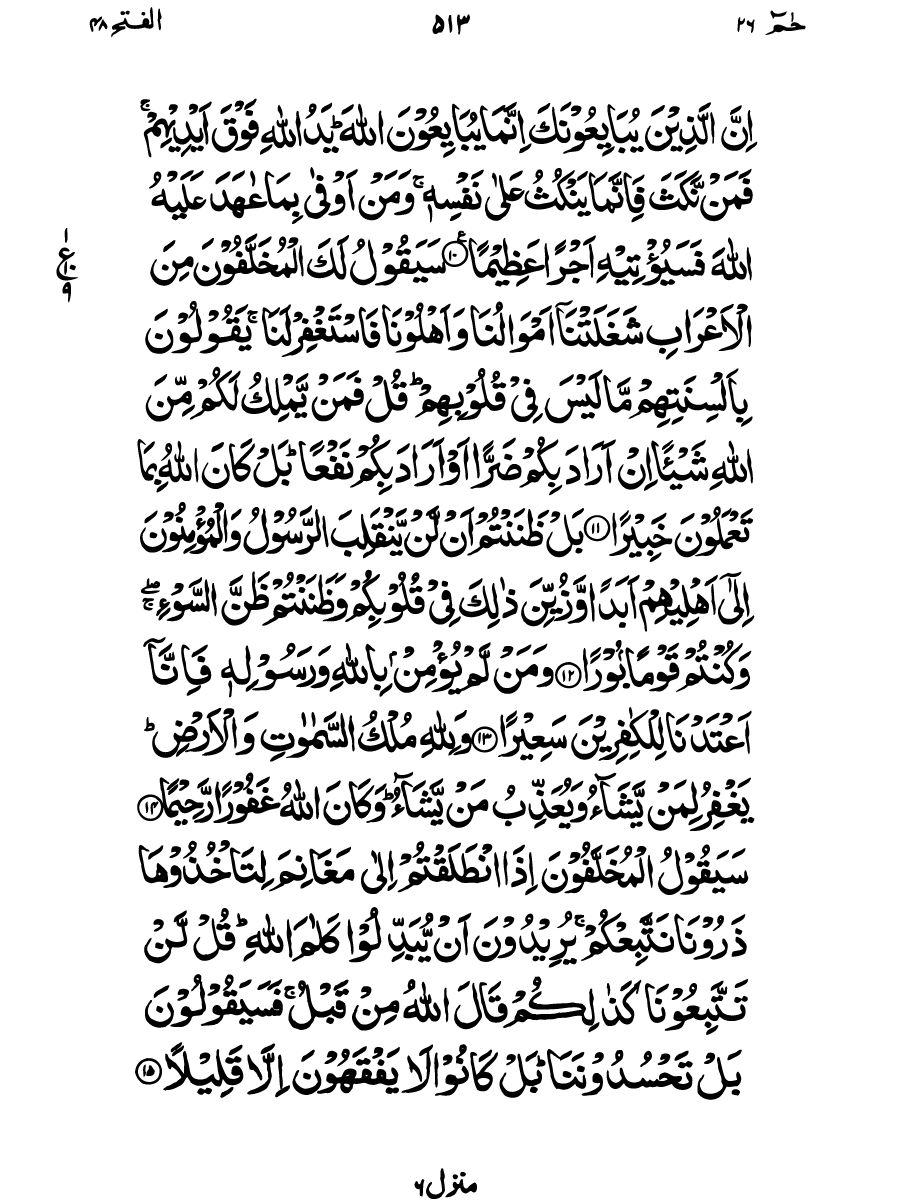 حٰمٓ ٢٦
٥١٣
الفتح ٤٨
اِنَّ الَّذِيْنَ يُبَايِعُوْنَكَ اِنَّمَا يُبَايِعُوْنَ اللّٰهَ ؕ يَدُ اللّٰهِ فَوْقَ اَيْدِيْهِمْ ۚ
فَمَنْ نَّكَثَ فَاِنَّمَا يَنْكُثُ عَلٰى نَفْسِهٖ ۚ وَمَنْ اَوْفٰى بِمَا عٰهَدَ عَلَيْهُ
اللّٰهَ فَسَيُؤْتِيْهِ اَجْرًا عَظِيْمًا ﴿۱۰﴾ ع سَيَقُوْلُ لَكَ الْمُخَلَّفُوْنَ مِنَ
١ ع ١٠ ٩
الْاَعْرَابِ شَغَلَتْنَاۤ اَمْوَالُنَا وَاَهْلُوْنَا فَاسْتَغْفِرْ لَنَا ۚ يَقُوْلُوْنَ
بِاَلْسِنَتِهِمْ مَّا لَيْسَ فِيْ قُلُوْبِهِمْ ؕ قُلْ فَمَنْ يَّمْلِكُ لَكُمْ مِّنَ
اللّٰهِ شَيْـًٔا اِنْ اَرَادَ بِكُمْ ضَرًّا اَوْ اَرَادَ بِكُمْ نَفْعًا ؕ بَلْ كَانَ اللّٰهُ بِمَا
تَعْمَلُوْنَ خَبِيْرًا ﴿۱۱﴾ بَلْ ظَنَنْتُمْ اَنْ لَّنْ يَّنْقَلِبَ الرَّسُوْلُ وَالْمُؤْمِنُوْنَ
اِلٰۤى اَهْلِيْهِمْ اَبَدًا وَّزُيِّنَ ذٰلِكَ فِيْ قُلُوْبِكُمْ وَظَنَنْتُمْ ظَنَّ السَّوْءِ ۖۚ
وَكُنْتُمْ قَوْمًۢا بُوْرًا ﴿۱۲﴾ وَمَنْ لَّمْ يُؤْمِنْۢ بِاللّٰهِ وَرَسُوْلِهٖ فَاِنَّاۤ
اَعْتَدْنَا لِلْكٰفِرِيْنَ سَعِيْرًا ﴿۱۳﴾ وَلِلّٰهِ مُلْكُ السَّمٰوٰتِ وَالْاَرْضِ ؕ
يَغْفِرُ لِمَنْ يَّشَآءُ وَيُعَذِّبُ مَنْ يَّشَآءُ ؕ وَكَانَ اللّٰهُ غَفُوْرًا رَّحِيْمًا ﴿۱۴﴾
سَيَقُوْلُ الْمُخَلَّفُوْنَ اِذَا انْطَلَقْتُمْ اِلٰى مَغَانِمَ لِتَاْخُذُوْهَا
ذَرُوْنَا نَتَّبِعْكُمْ ۚ يُرِيْدُوْنَ اَنْ يُّبَدِّلُوْا كَلٰمَ اللّٰهِ ؕ قُلْ لَّنْ
تَتَّبِعُوْنَا كَذٰلِكُمْ قَالَ اللّٰهُ مِنْ قَبْلُ ۚ فَسَيَقُوْلُوْنَ
بَلْ تَحْسُدُوْنَنَا ؕ بَلْ كَانُوْا لَا يَفْقَهُوْنَ اِلَّا قَلِيْلًا ﴿۱۵﴾
منزل ٦